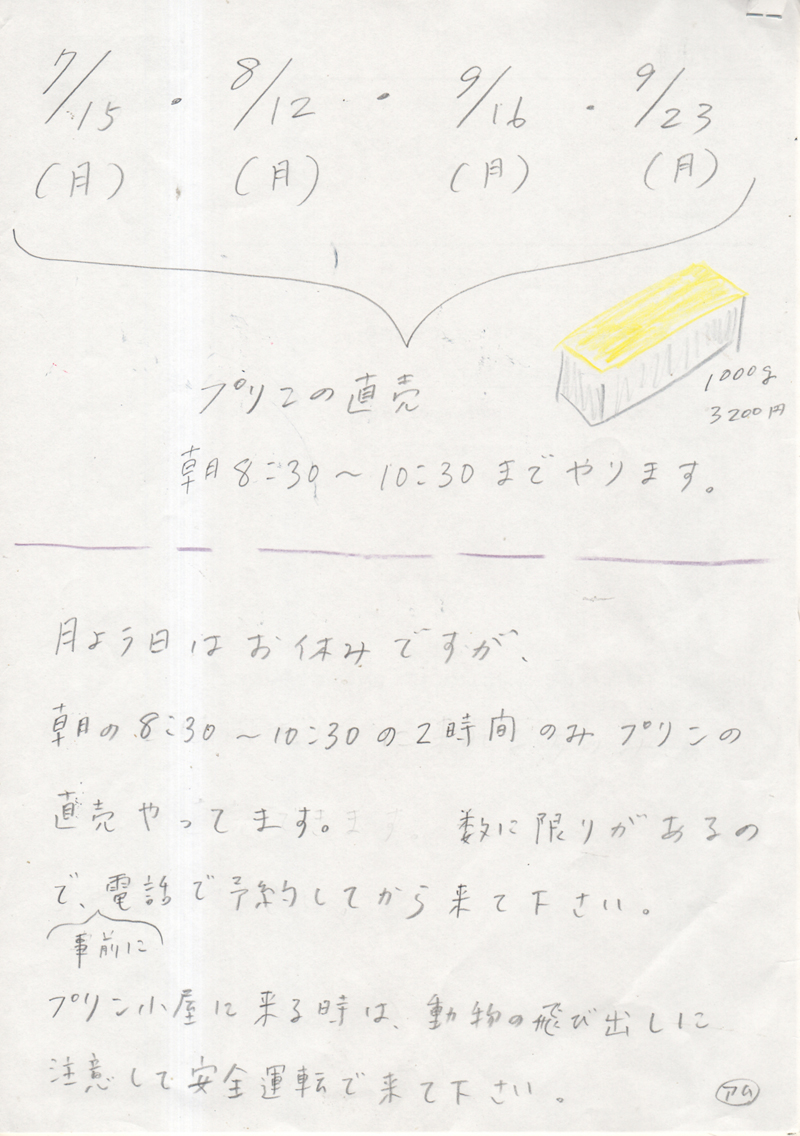 7/15・8/12・9/16・9/23
(月) (月) (月) (月)
1000g
3200円
プリンの直売
朝8:30～10:30までやります。
月よう日はお休みですが、
朝の8:30～10:30の2時間のみプリンの
直売やってます。 数に限りがあるの
で、電話で予約してから来て下さい。
事前に
プリン小屋に来る時は、動物の飛び出しに
注意して安全運転で来て下さい。
アム